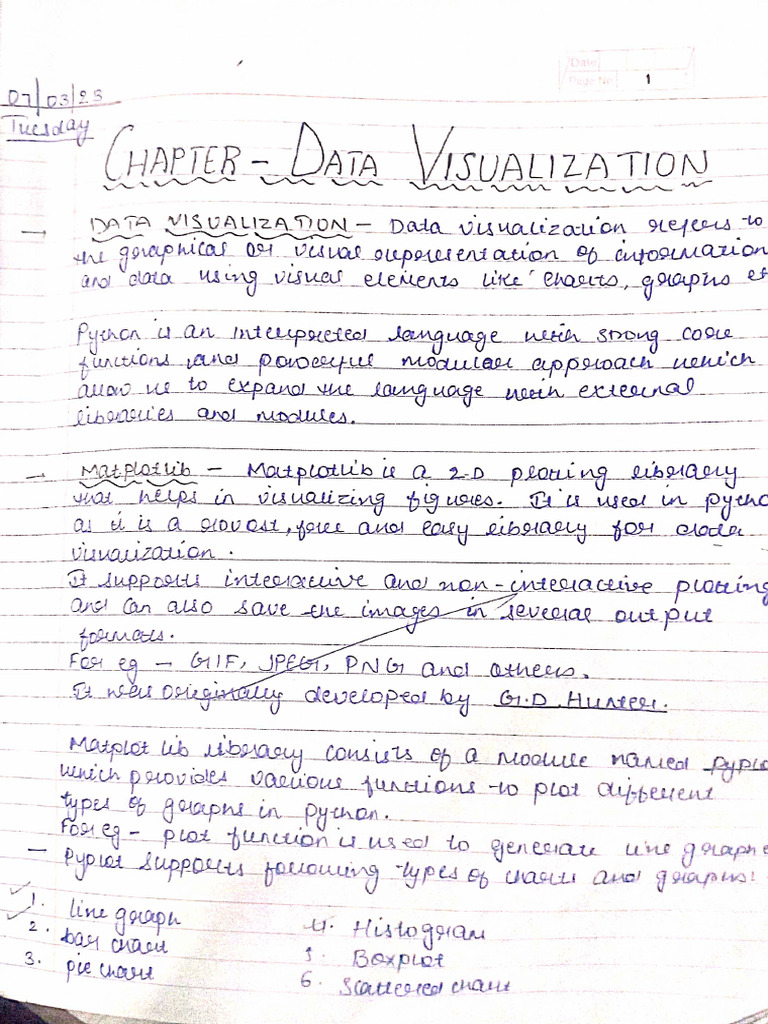 Date
Page No 1
07/03/23
Tuesday
CHAPTER - DATA VISUALIZATION
→ DATA VISUALIZATION - Data visualization refers to
the graphical or visual representation of information
and data using visual elements like charts, graphs et
Python is an interpreted language with strong core
functions and powerful modular approach which
allow us to expand the language with external
libraries and modules.
→ Matplotlib - Matplotlib is a 2-D plotting library
that helps in visualizing figures. It is used in pytho
as it is a robust, free and easy library for data
visualization.
It supports interactive and non-interactive plotting
and can also save the images in several output
formats.
For eg - GIF, JPEG, PNG and others.
It was originally developed by G.D. Hunter.
Matplot lib library consists of a module named pyplo
which provides various functions to plot different
types of graphs in python.
For eg - plot function is used to generate line graph
- Pyplot supports following types of charts and graphs:
1. line graph
2. bar chart
3. pie chart
4. Histogram
5. Boxplot
6. Scattered chart